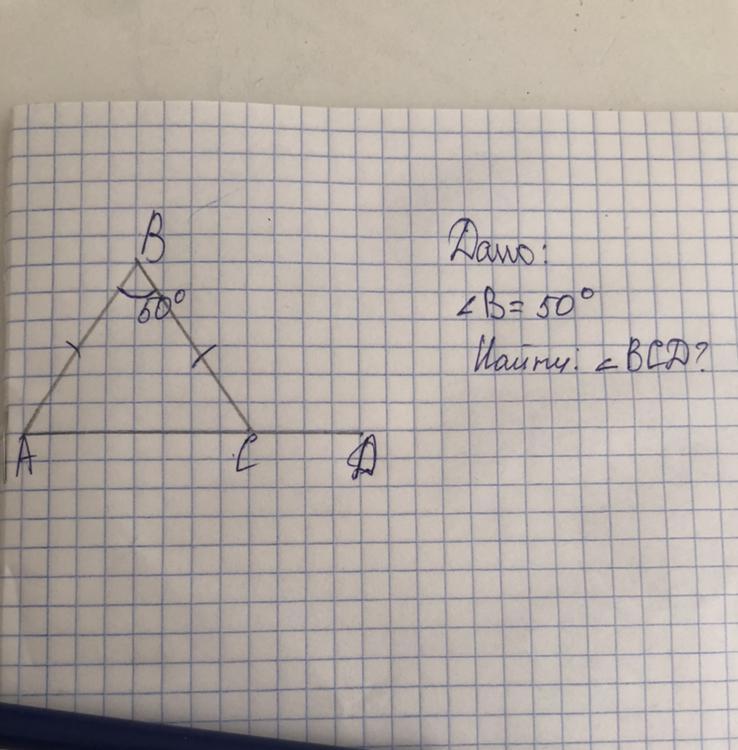 B
50°
A
C
D
Дано:
∠B = 50°
Найти: ∠BCD?